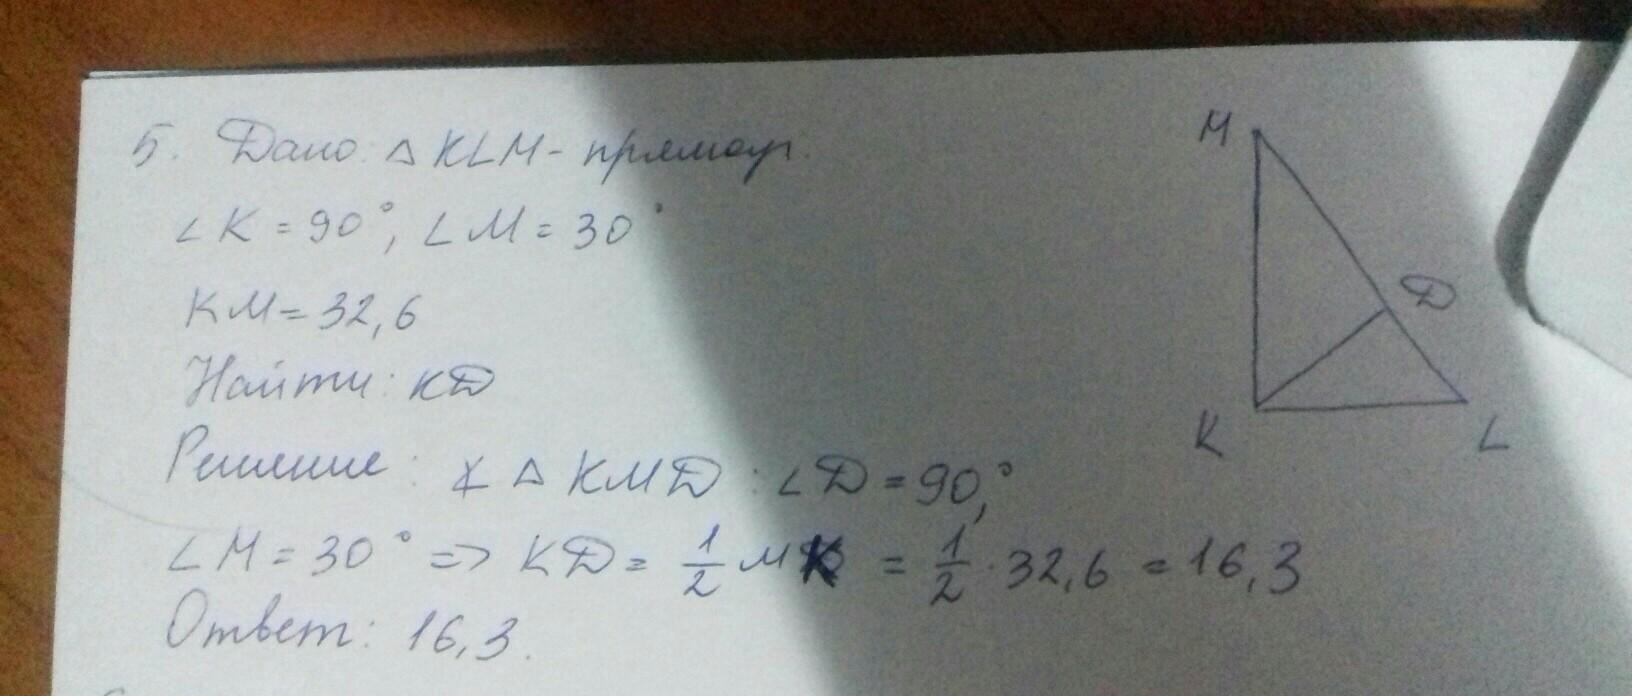 5. Дано: △ KLM - прямоуг.
∠K = 90°, ∠M = 30°
KM = 32,6
Найти: KD
Решение: ∠ △ KMD : ∠D = 90,°
∠M = 30° => KD = 1/2 MK = 1/2 · 32,6 = 16,3
Ответ: 16,3.
M
D
K
L